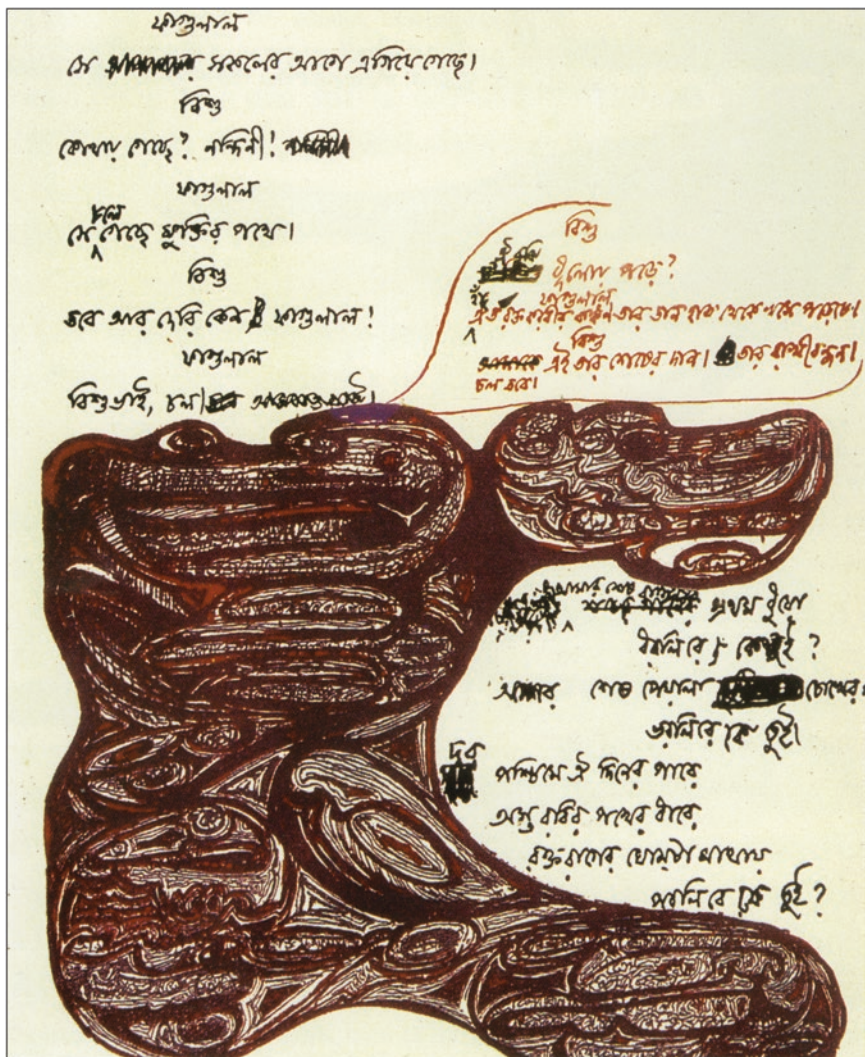 ফাগুলাল
সে সকলের আগে এগিয়ে গেছে।
বিশু
কোথায় গেছে? নন্দিনী!
ফাগুলাল
সে চলে গেছে মুক্তির পথে।
বিশু
তবে আর দেরি কেন ফাগুলাল!
ফাগুলাল
বিশুভাই, চল।
বিশু
ঐ বুঝি ধুলোয় পড়ে?
ফাগুলাল
ঐ ত রক্তকরবীর কঙ্কণ তার ডান হাত থেকে খসে পড়েছে।
বিশু
এই তার শেষের দান। তার রাখীবন্ধন।
চল তবে।
আমার শেষ প্রথম ধুয়ো
ধরলি রে, কে তুই?
আমার শেষ পেয়ালা চোখের
ভরলি রে কে তুই।
দূর পশ্চিমে ঐ দিনের পারে
অস্ত রবির পথের ধারে
রক্তরাগের ঘোমটা মাথায়
পরলি রে কে তুই?